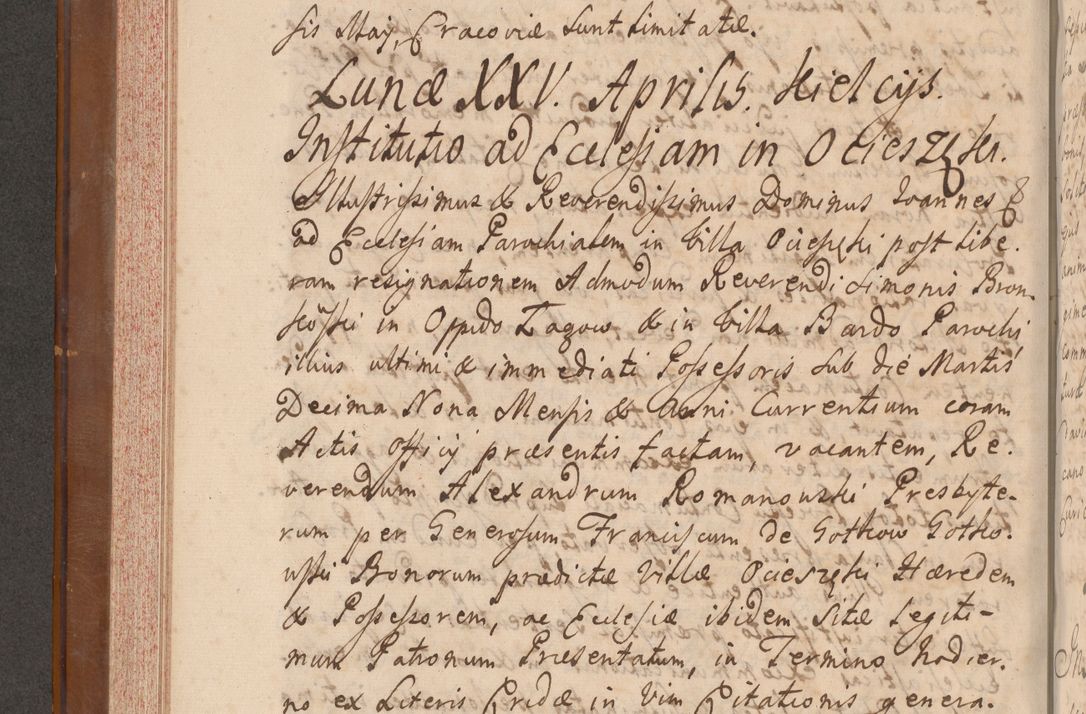 sis Maij, Cracoviæ sunt limitatæ.
Lunæ XXV. Aprilis. Kielcijs.
Institutio ad Ecclesiam in Ocieszęki.
Illustrissimus & Reverendissimus Dominus Ioannes E
ad Ecclesiam Parochialem in Villa Ocieszęki post libe.
ram resignationem Admodum Reverendi Simonis Bron-
in Oppido Łagow & in Villa Bardo Parochi
illius ultimi & immediati Possessoris sub die Martis
Decima Nona Mensis & Anni Currentium coram
Actis Officij præsentis factam, vacantem, Re.
verendum Alexandrum Romanowski Presbyte-
rum per Generosum Franciscum de Gotkow Gotko.
wski Bonorum prædictæ Villæ Ocieszęki Hæredem
& Possessorem, ac Ecclesiæ ibidem sitæ Legiti-
mum Patronum Præsentatum, in Termino hodier.
no ex Literis Cridæ in vim Citationis genera.